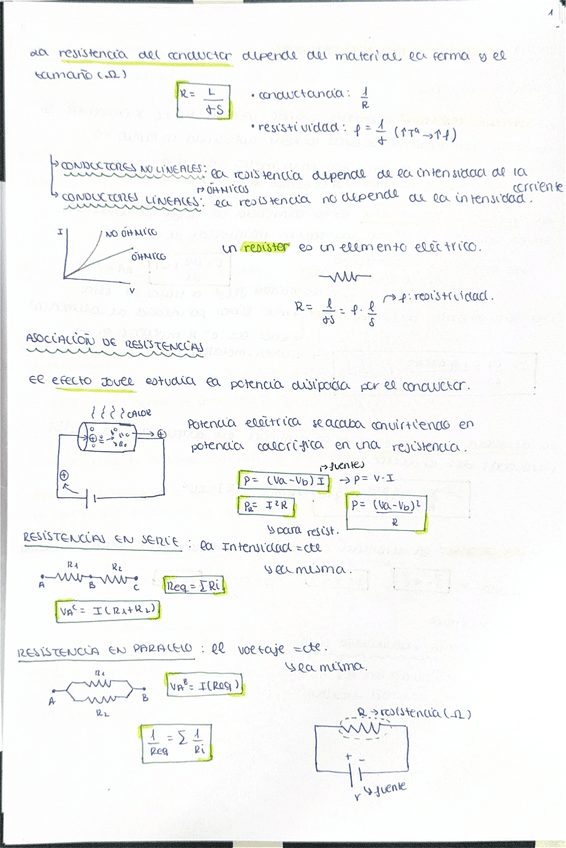 1
La resistencia del conductor depende del material, la forma y el
tamaño (Ω)
R = L / σS
• conductancia: 1/R
• resistividad: ρ = 1/σ (↑Tª → ↑ρ)
CONDUCTORES NO LINEALES: la resistencia depende de la intensidad de la
corriente
ÓHMICOS
CONDUCTORES LINEALES: la resistencia no depende de la intensidad.
I
NO ÓHMICO
ÓHMICO
V
un resistor es un elemento eléctrico.
R = l/σS = ρ · l/S
ρ: resistividad.
ASOCIACIÓN DE RESISTENCIAS
El efecto Joule estudia la potencia disipada por el conductor.
CALOR
Potencia eléctrica se acaba convirtiendo en
potencia calorífica en una resistencia.
fuentes
P = (Va-Vb) I → P = V·I
PR = I²R
P = (Va-Vb)² / R
para resist.
RESISTENCIAS EN SERIE: la Intensidad = cte
la misma.
R1 R2
A B C
Req = ΣRi
VAC = I(R1+R2)
RESISTENCIA EN PARALELO: el voltaje = cte.
la misma.
R1
A B
R2
VAB = I(Req)
1/Req = Σ 1/Ri
R → resistencia (Ω)
+ −
r
fuente